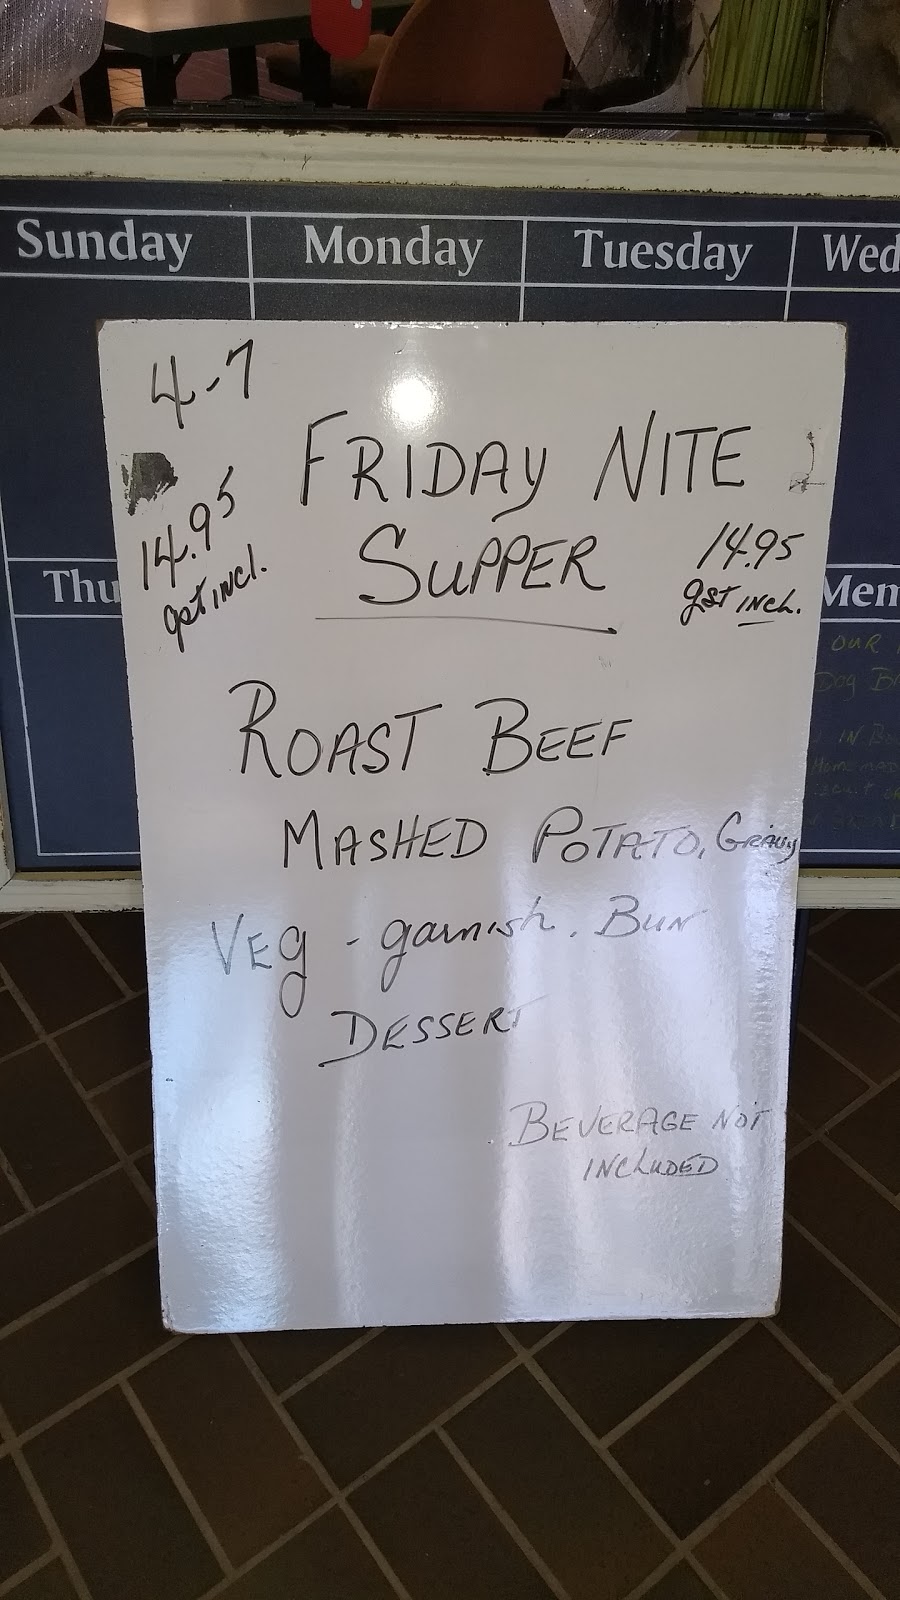 Sunday Monday Tuesday Wed
4-7
FRIDAY NITE
SUPPER
14.95
gst incl.
14.95
gst incl.
Thu
Mem
OUR
Dog
IN
ROAST BEEF
MASHED POTATO, GRAVY
VEG - garnish, BUN
DESSERT
BEVERAGE NOT
INCLUDED